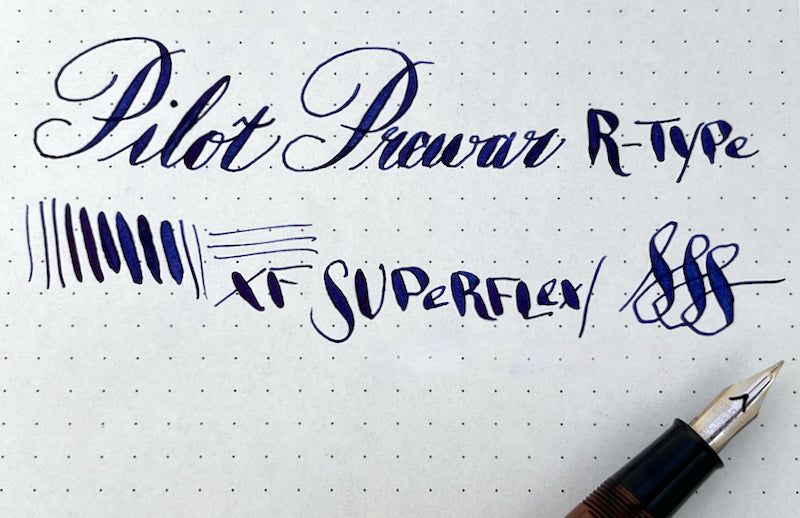 Pilot Prewar R-TYPe
XF SUPeRFLex